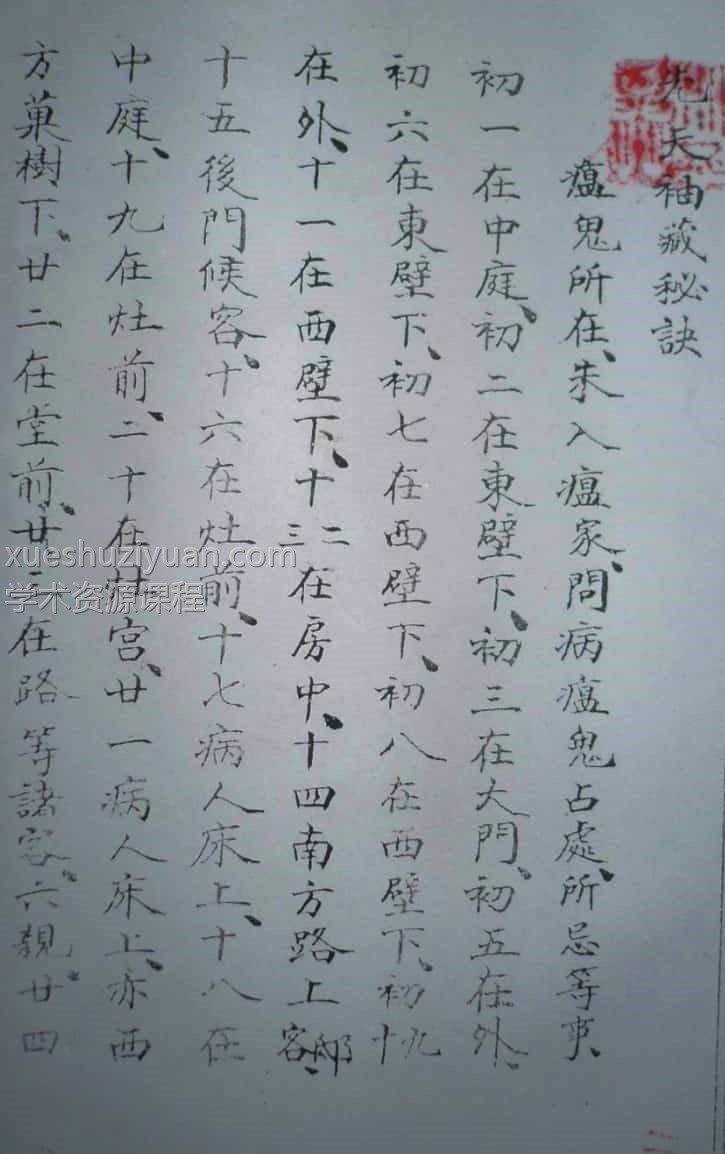 先天袖藏秘訣
瘟鬼所在、未入瘟家、問病瘟鬼占處、所忌等事、
初一在中庭、初二在東壁下、初三在大門、初五在外、
初六在東壁下、初七在西壁下、初八在西壁下、初九十
在外、十一在西壁下、十二三在房中、十四南方路上邸客、
十五後門候客、十六在灶前、十七病人床上、十八在
中庭、十九在灶前、二十在灶宫、廿一病人床上、亦西
方菓樹下、廿二在堂前、廿三在路等諸客、六親、廿四
xueshuziyuan.com
学术资源课程